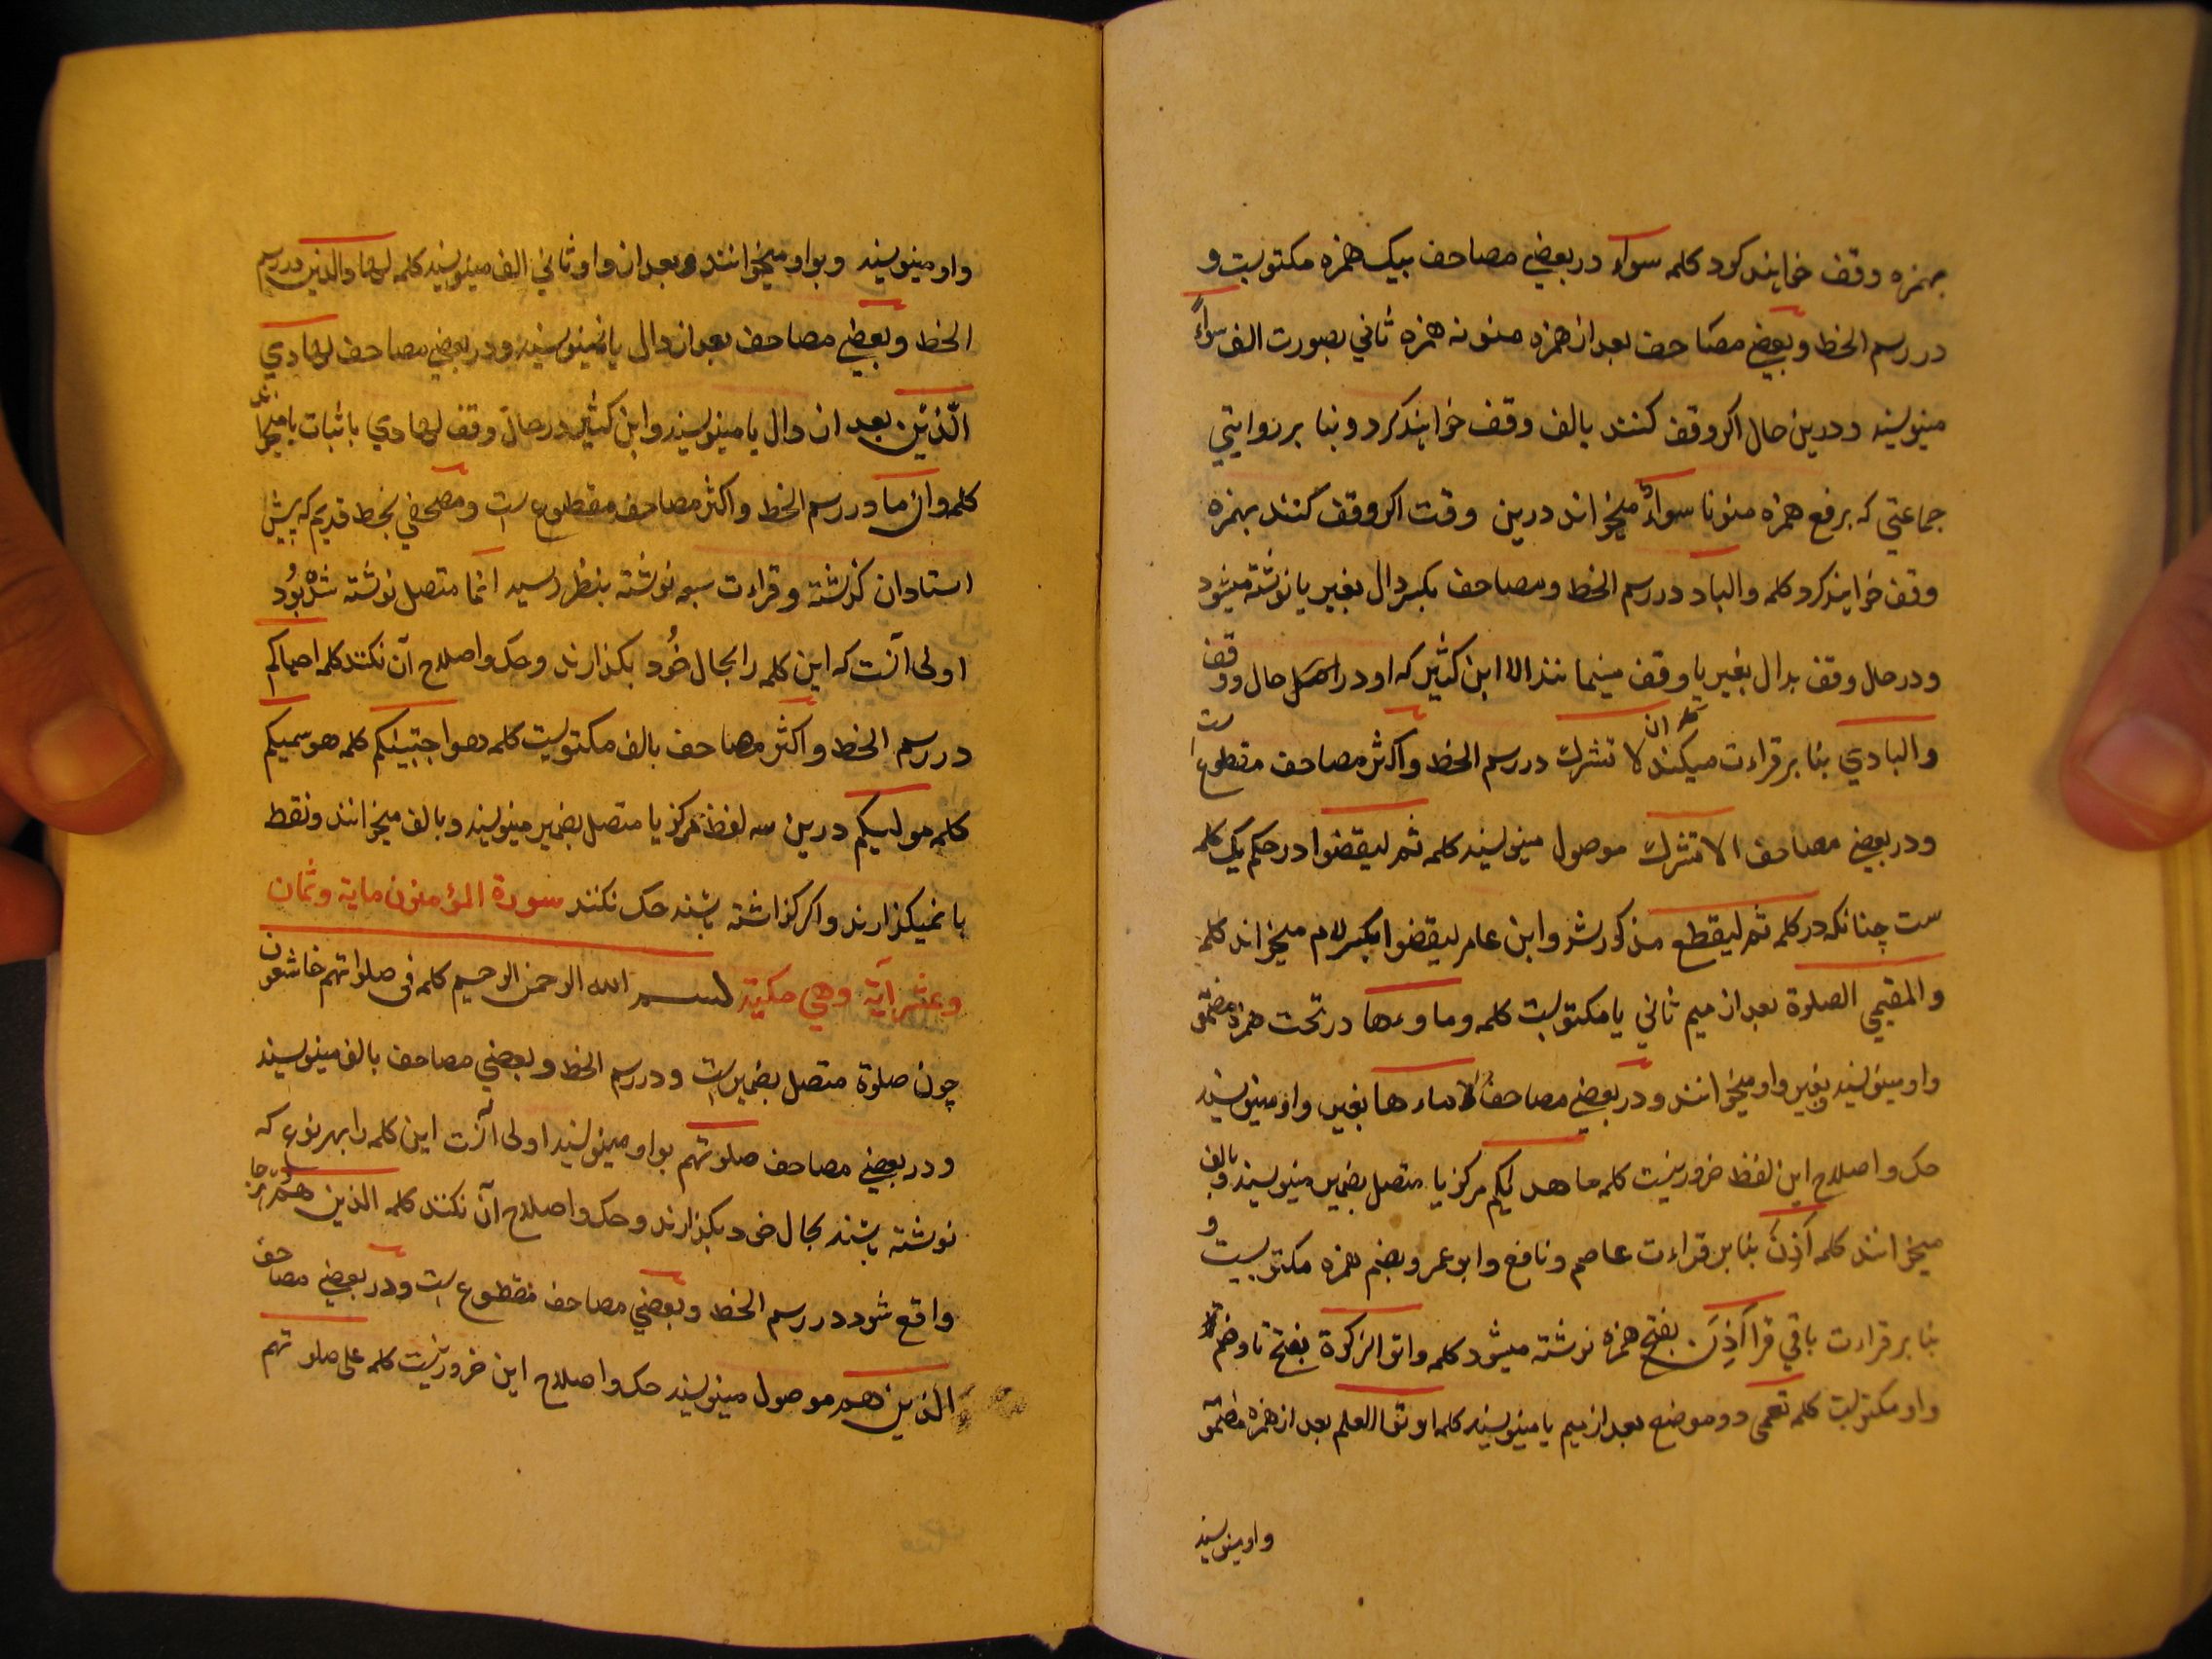 بهمزه وقف خوانید کود کلمه سواء در بعضی مصاحف بیک همزه مکتوبست و
در رسم الخط و بعضی مصاحف بعد از همزه منونه همزه ثانی بصورت الف سواءً
مینویسند و درین حال اکر وقف کنند بالف وقف خوانید کرد و بنا بر روایتی
جماعتی که برفع همزه منونا سواءٌ میخواند درین وقت اکر وقف کنند بهمزه
وقف خوانید کرد کلمه والباد در رسم الخط و مصاحف بکسر دال بغیر یا نوشته میشود
و در حال وقف بدال بغیر یا وقف مینمایند الا ابن کثیر که او در حال و وقف
والبادی بنا بر قراءت میکند کلمه ان لا تشرک در رسم الخط و اکثر مصاحف مقطوع است
و در بعضی مصاحف الا تشرک موصول مینویسند کلمه ثم لیقضوا در حکم یک کلمه
ست چنانکه در کلمه ثم لیقطع مذکور شد و ابن عامر لیقضوا بکسر لام میخواند کلمه
والمقیمی الصلوة بعد از میم ثانی یا مکتوبست کلمه و ماوءها در تحت همزه مضمومه
واو مینویسند و بغیر واو میخوانند و در بعضی مصاحف دماءها بغیر واو مینویسند
حک و اصلاح این لفظ ضرور نیست کلمه ما هدیکم مرکز یا متصل بضمیر مینویسند و بالف
میخوانند کلمه اُذِنَ بنا بر قراءت عاصم و نافع و ابو عمرو بضم همزه مکتوبیست و
بنا بر قراءت باقی قرا اَذِنَ بفتح همزه نوشته میشود کلمه واتوا الزکوة بفتح تا و ضم
واو مکتوبست کلمه تعمی دو موضع بعد از میم یا مینویسند کلمه اوتوا العلم بعد از همزه مضمومه
واو مینویسند
واو مینویسند و بواو میخوانند و بعد از واو ثانی الف مینویسند کلمه لهاد الذین در رسم
الخط و بعضی مصاحف بعد از دال یا نمینویسند و در بعضی مصاحف لهادی
الّذین بعد از دال یا مینویسند و ابن کثیر در حال وقف لهادی باثبات یا میخواند
کلمه وان ما در رسم الخط و اکثر مصاحف مقطوع است و مصحفی بخط قدیم که پیش
استادان کذشته و قراءت سبعه نوشته بنظر رسید انما متصل نوشته شده بود
اولی آنست که این کلمه را بحال خود بکذارند و حک و اصلاح آن نکنند کلمه احیاکم
در رسم الخط و اکثر مصاحف بالف مکتوبست کلمه هو اجتبیکم کلمه هو سمیکم
کلمه مولیکم درین سه لفظ مرکز یا متصل بضمیر مینویسند و بالف میخوانند و نقط
یا نمیکذارند و اکر کذاشته باشند حک نکنند سورة المؤمنون مایة و ثمان
و عشر آیة وهی مکیة بسم الله الرحمن الرحیم کلمه فی صلواتهم خاشعون
چون صلوة متصل بضمیر است و در رسم الخط و بعضی مصاحف بالف مینویسند
و در بعضی مصاحف صلوتهم بواو مینویسند اولی آنست این کلمه را بهر نوع که
نوشته باشند بحال خود بکذارند و حک و اصلاح آن نکنند کلمه الذین هم هر جا
واقع شود در رسم الخط و بعضی مصاحف مقطوع است و در بعضی مصاحف
الذین هم موصول مینویسند حک و اصلاح این ضرور نیست کلمه علی صلوتهم